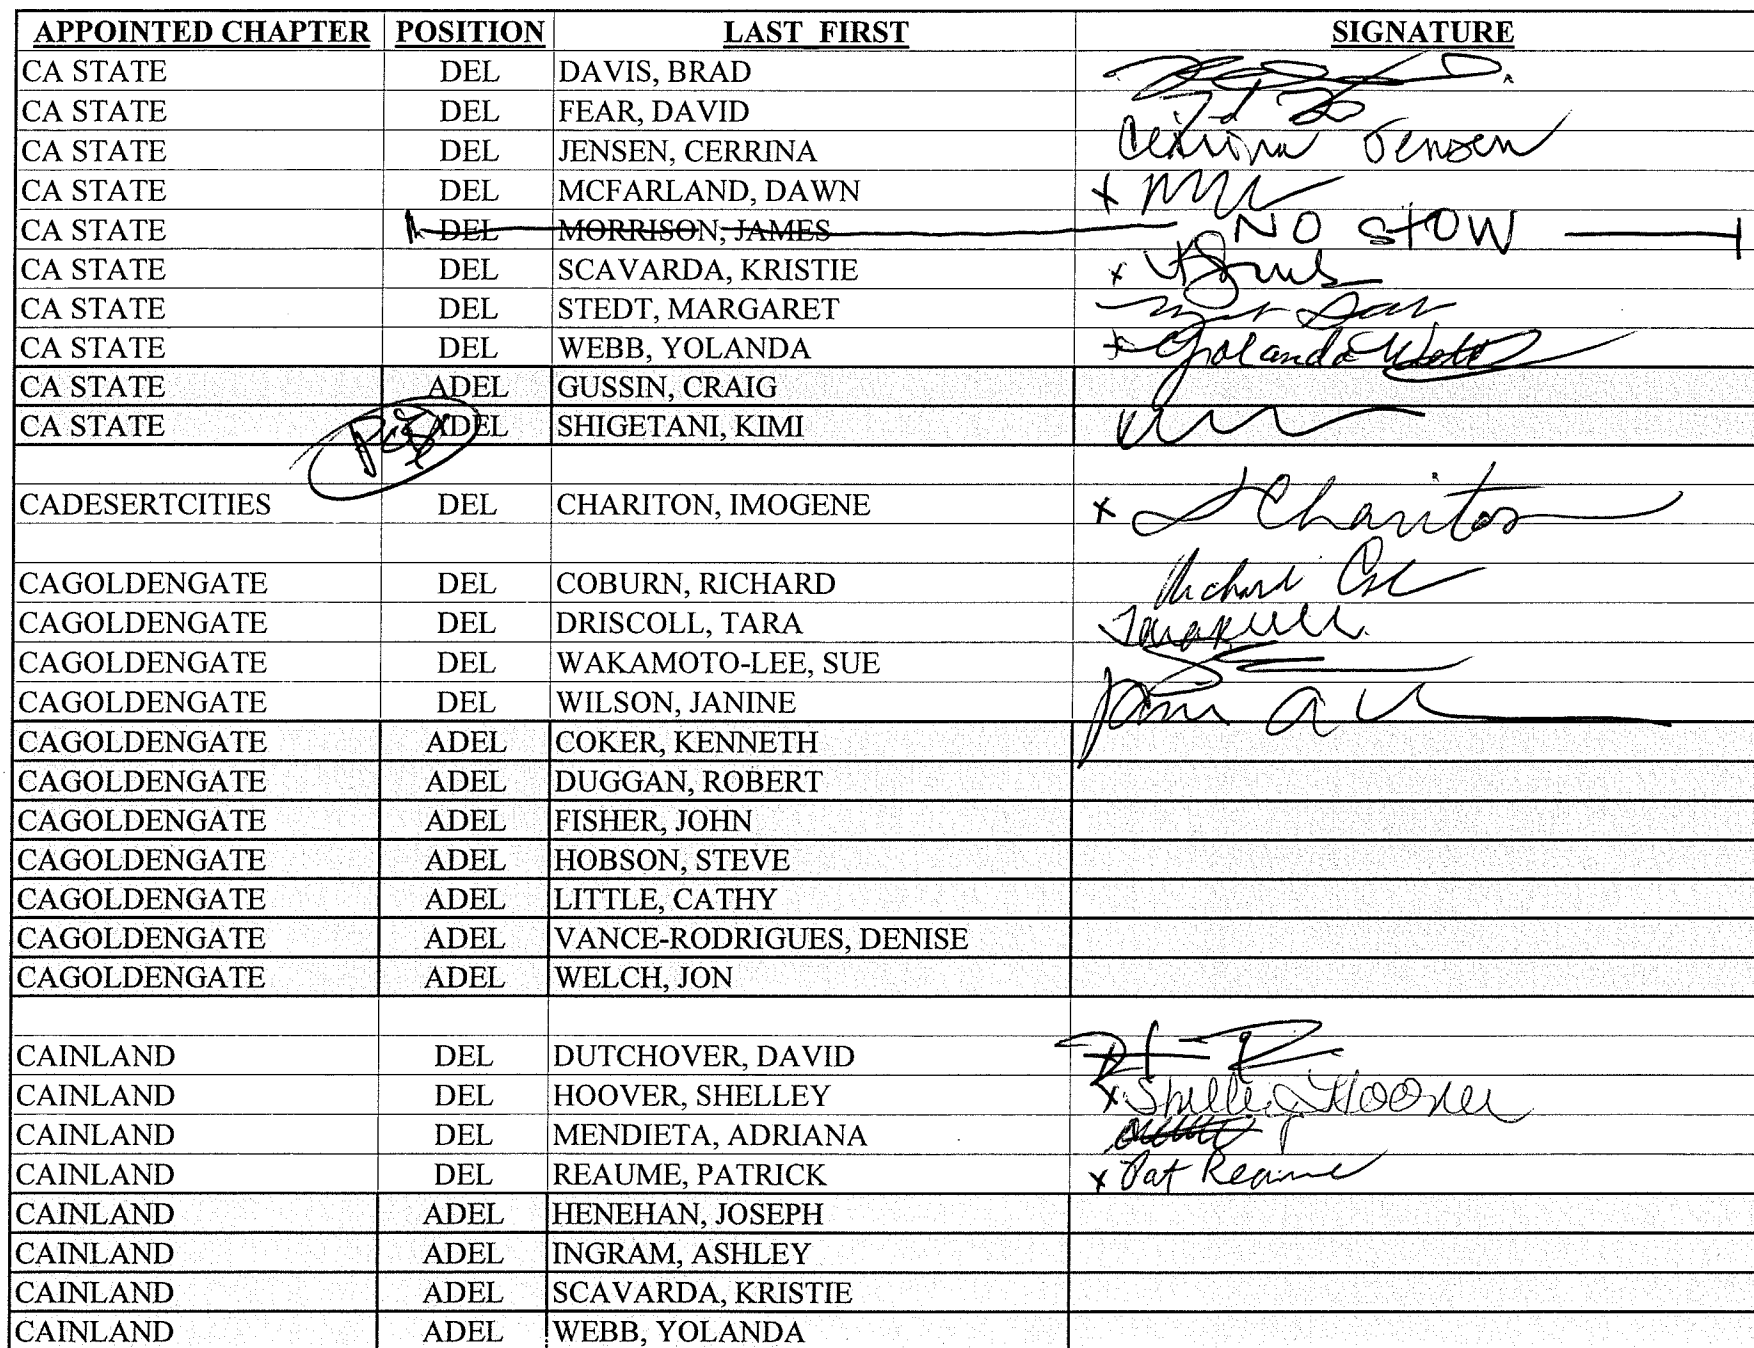 APPOINTED CHAPTER POSITION LAST FIRST SIGNATURE
CA STATE DEL DAVIS, BRAD
CA STATE DEL FEAR, DAVID
CA STATE DEL JENSEN, CERRINA Cerrina Jensen
CA STATE DEL MCFARLAND, DAWN x
CA STATE DEL MORRISON, JAMES NO SHOW
CA STATE DEL SCAVARDA, KRISTIE x
CA STATE DEL STEDT, MARGARET
CA STATE DEL WEBB, YOLANDA x Yolanda Webb
CA STATE ADEL GUSSIN, CRAIG
CA STATE ADEL SHIGETANI, KIMI
CADESERTCITIES DEL CHARITON, IMOGENE x I Chariton
CAGOLDENGATE DEL COBURN, RICHARD Richard
CAGOLDENGATE DEL DRISCOLL, TARA
CAGOLDENGATE DEL WAKAMOTO-LEE, SUE
CAGOLDENGATE DEL WILSON, JANINE
CAGOLDENGATE ADEL COKER, KENNETH
CAGOLDENGATE ADEL DUGGAN, ROBERT
CAGOLDENGATE ADEL FISHER, JOHN
CAGOLDENGATE ADEL HOBSON, STEVE
CAGOLDENGATE ADEL LITTLE, CATHY
CAGOLDENGATE ADEL VANCE-RODRIGUES, DENISE
CAGOLDENGATE ADEL WELCH, JON
CAINLAND DEL DUTCHOVER, DAVID
CAINLAND DEL HOOVER, SHELLEY x Shelley Hoover
CAINLAND DEL MENDIETA, ADRIANA
CAINLAND DEL REAUME, PATRICK x Pat Reaume
CAINLAND ADEL HENEHAN, JOSEPH
CAINLAND ADEL INGRAM, ASHLEY
CAINLAND ADEL SCAVARDA, KRISTIE
CAINLAND ADEL WEBB, YOLANDA